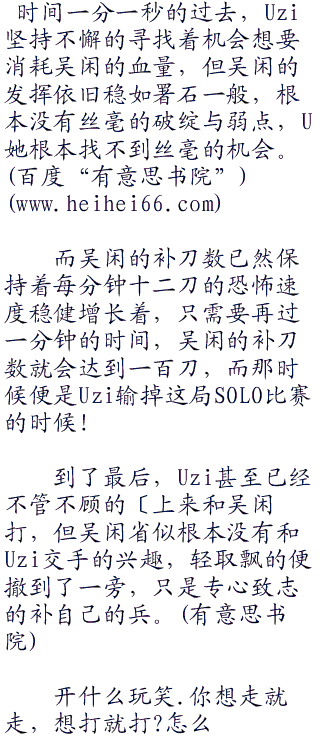 时间一分一秒的过去，Uzi
坚持不懈的寻找着机会想要
消耗吴闲的血量，但吴闲的
发挥依旧稳如署石一般，根
本没有丝毫的破绽与弱点，U
她根本找不到丝毫的机会。
(百度“有意思书院”)
(www.heihei66.com)
而吴闲的补刀数已然保
持着每分钟十二刀的恐怖速
度稳健增长着，只需要再过
一分钟的时间，吴闲的补刀
数就会达到一百刀，而那时
候便是Uzi输掉这局SOLO比赛
的时候！
到了最后，Uzi甚至已经
不管不顾的〔上来和吴闲
打，但吴闲省似根本没有和
Uzi交手的兴趣，轻取飘的便
撤到了一旁，只是专心致志
的补自己的兵。(有意思书
院)
开什么玩笑.你想走就
走，想打就打?怎么